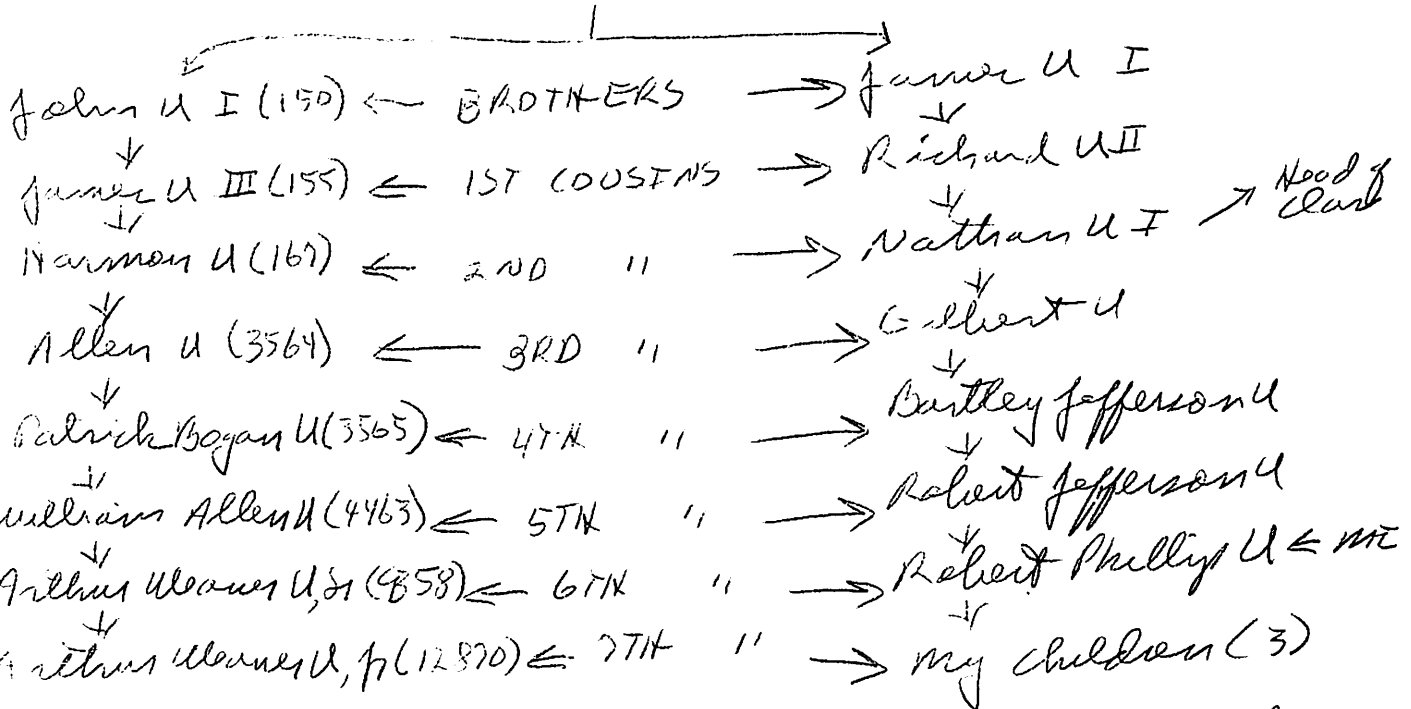 John U I (150) ← BROTHERS → James U I
James U III (155) ← 1ST COUSINS → Richard U II
Harmon U (167) ← 2ND " → Nathan U I → Head of
Clan
Allen U (3564) ← 3RD " → Gilbert U
Patrick Bogan U (3565) ← 4TH " → Bartley Jefferson U
William Allen U (4463) ← 5TH " → Robert Jefferson U
Arthur Weaver U, Sr ← 6TH " → Robert Phillip U ← ME
Arthur Weaver U, Jr (12870) ← 7TH " → My children (3)